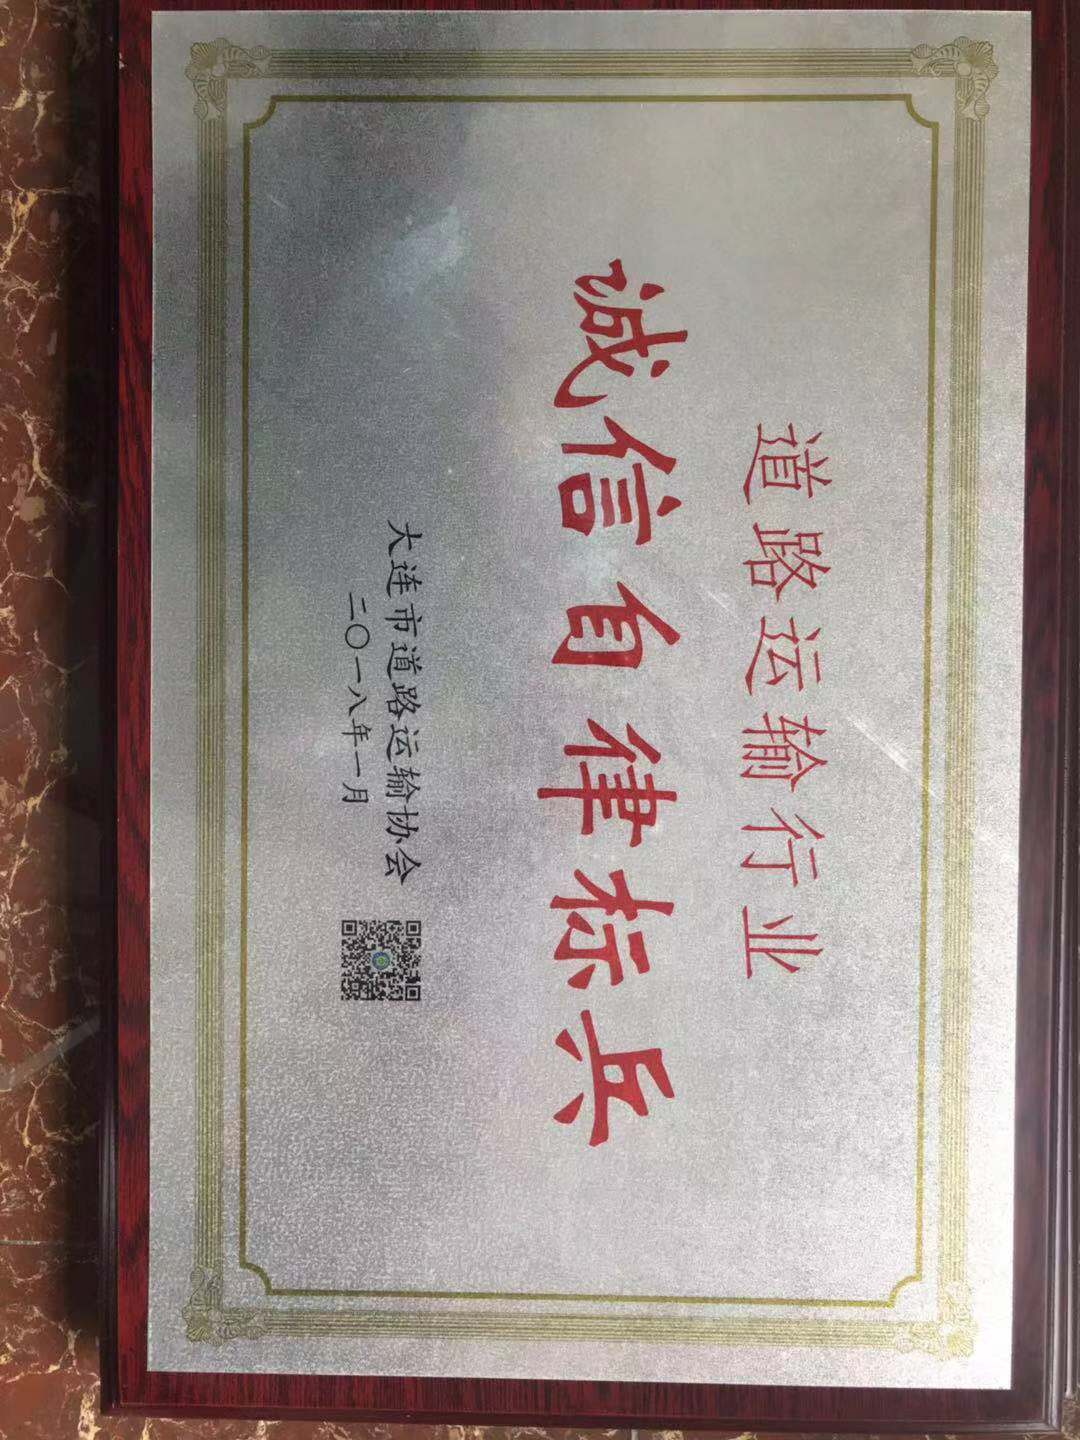 道路运输行业
诚信自律标兵
大连市道路运输协会
二〇一八年一月